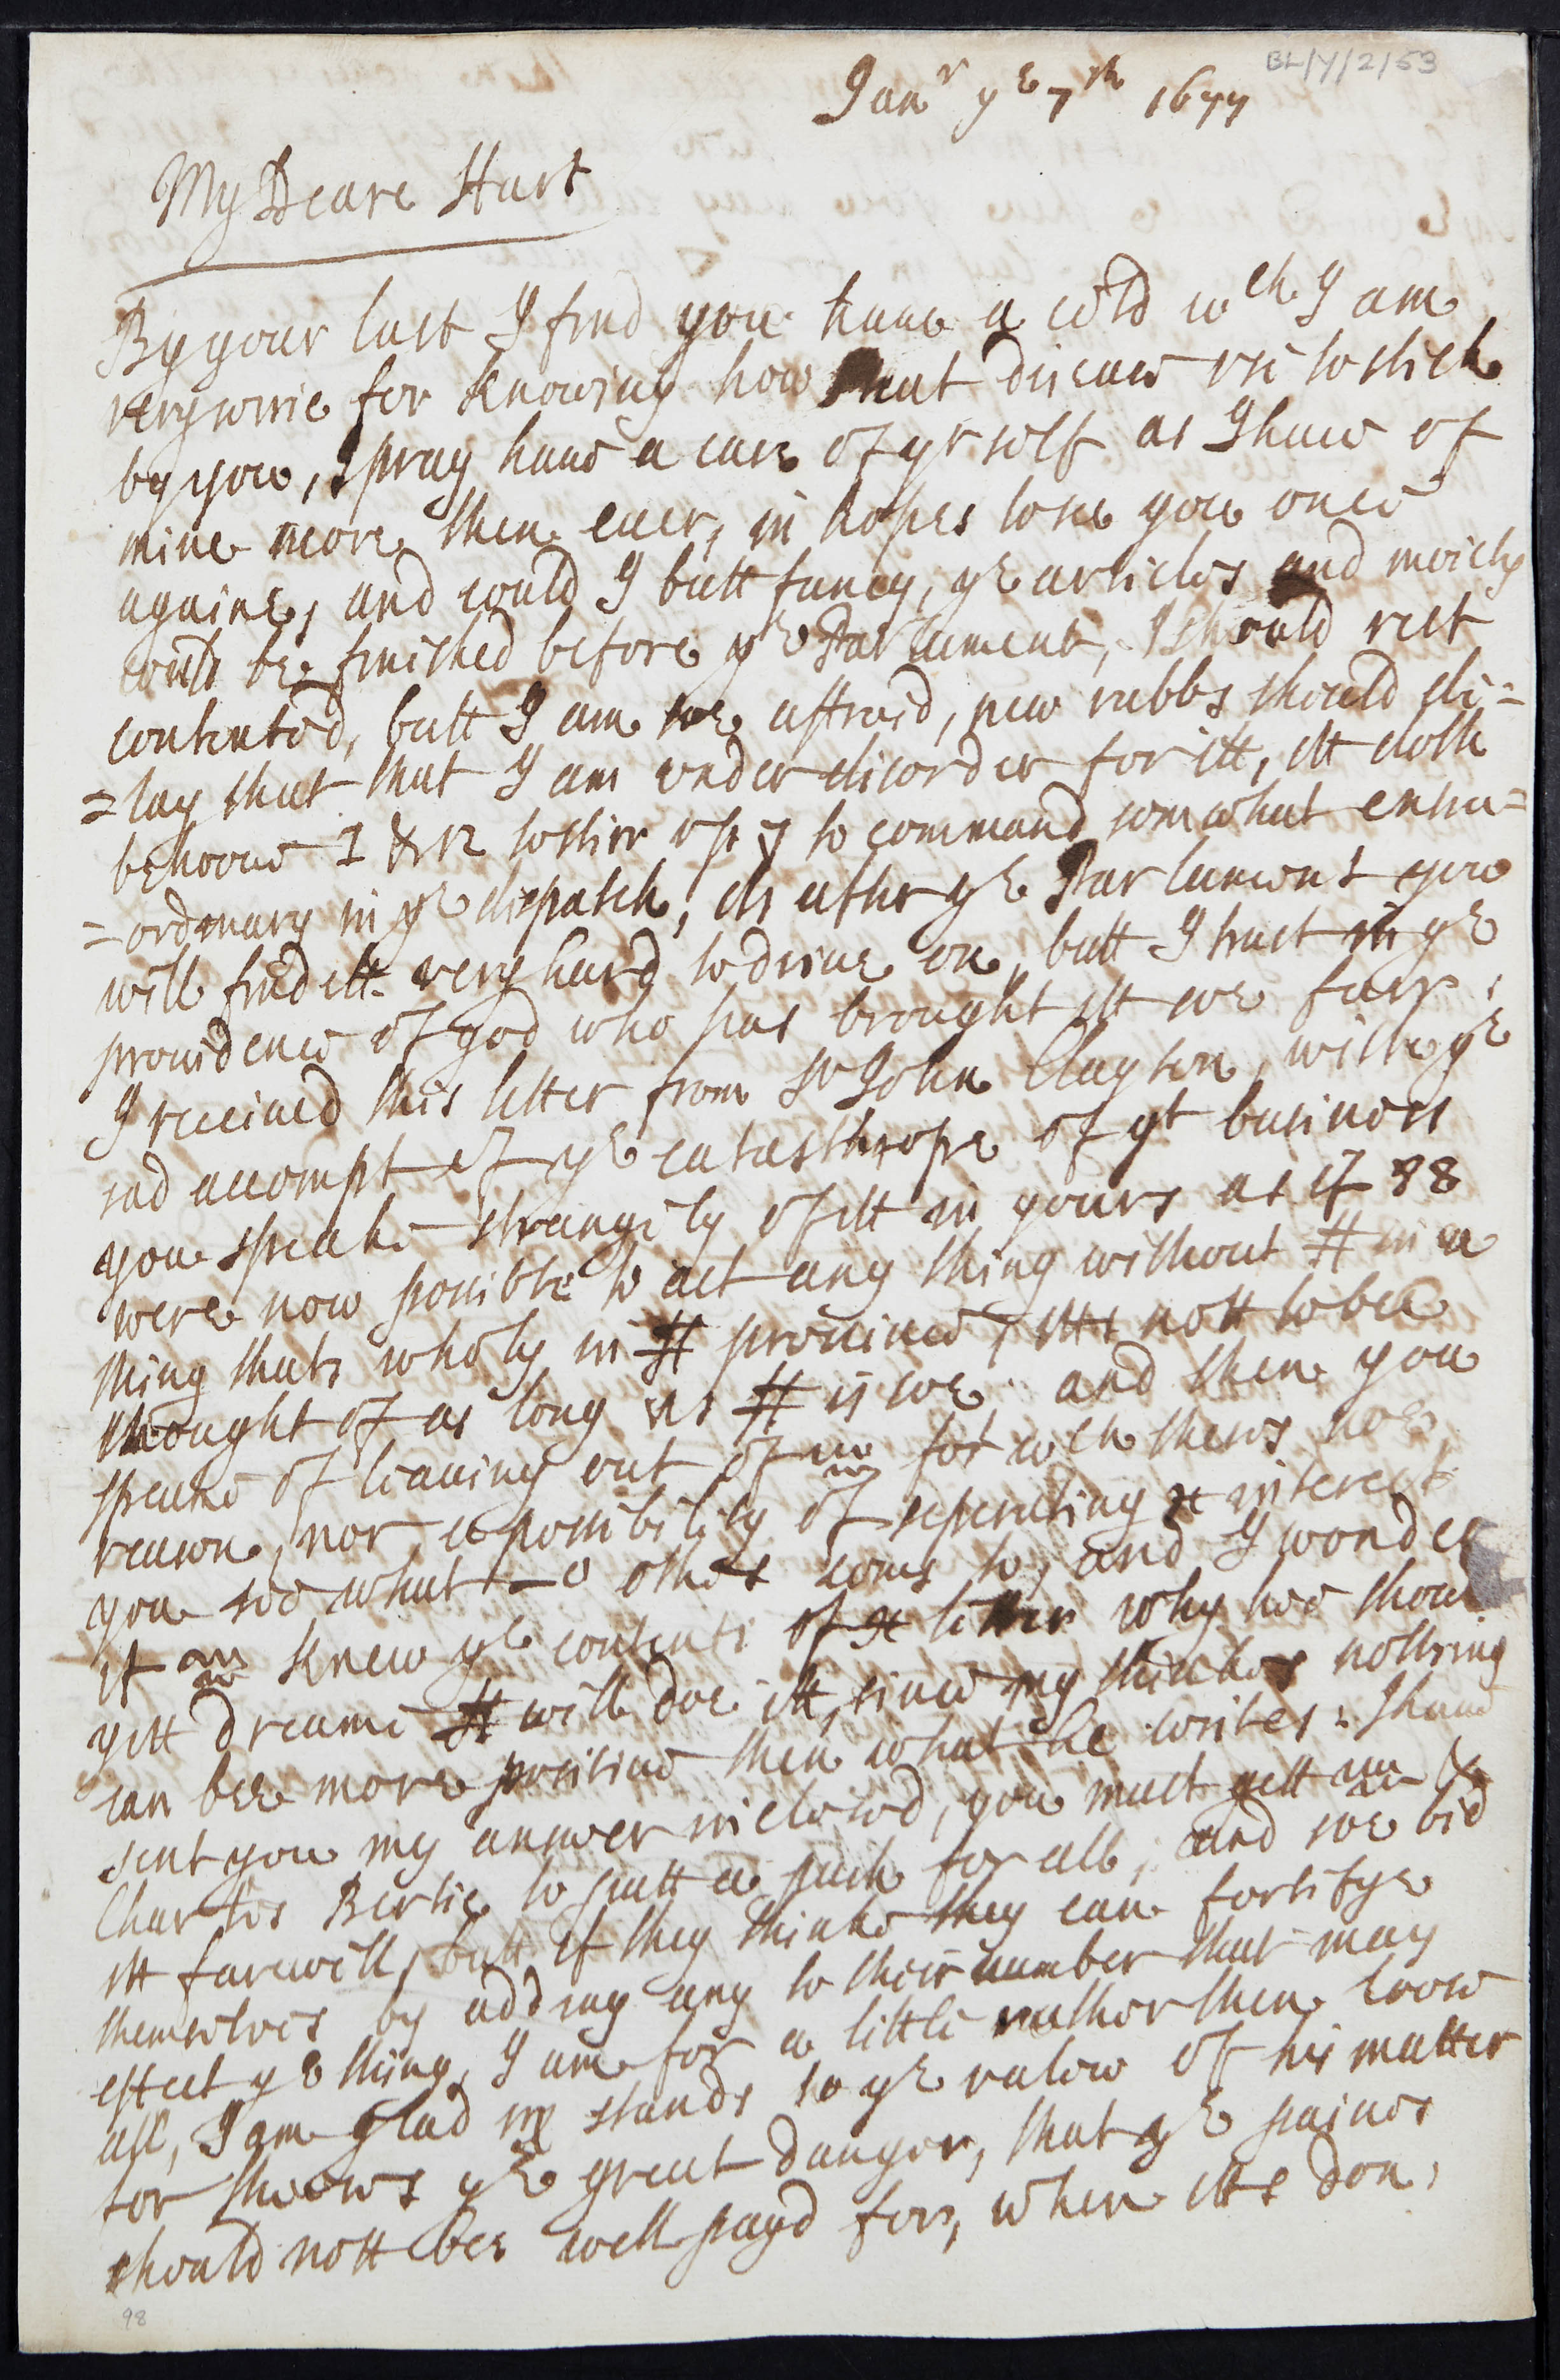 BL/Y/2/53
Janr ye 7th 1677
My Deare Hart
By your last I find you haue a cold wch I am
very sorrie for knowing how that diseas use to stick
by you, I pray haue a care of yr self as I haue of
mine more then euer, in hopes to se you once
againe, and could I butt fancy, ye articles and
could be finished before ye Parlument, I should rest
contented, butt I am so affraid, new rubbs should de=
=lay that that I am vnder disorder for itt, itt doth
behooue I & 12 to stirr vp 7 to command somwhat extra=
=ordinary in ye dispatch, els after ye Parlument you
will find itt very hard to driue on, butt I trust in ye
prouidence of god who has brought itt soe farr,
I receiued this letter from Sr John Clayton, with ye
sad accompt of ye catasthrope of yt businoss
you speake strangely of itt in yours as if 88
were now possible to act any thing without # in a
thing thats wholy in # prouince, itts nott to bee
thought of as long as # is soe, and then you
speake of leauing out of for wch thers noe
reason, nor a possibility of seperating # interest
you see what others coms to, and I wonder
if knew ye contents of # letter why hee shoul
yett dreame # will doe itt, since my thinkes nothing
can bee more positiue then what he writes: I haue
sent you my answer inclosed, you must gett &
Charles Bertie to putt a push for all, and soe bid
itt farewill, butt if they thinke they can fortifye
themselves by adding any to their number that may
effect ye thing, I am for a little rather then loose
all, I am glad stands to ye value of his matter
for theers ye great danger, that ye paines
should nott bee well payd for, when itts don,
98